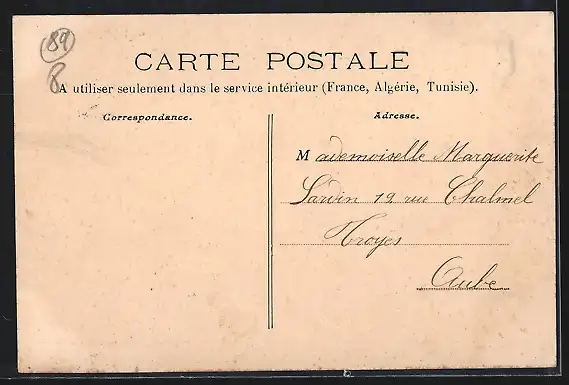 89
8
CARTE POSTALE
A utiliser seulement dans le service intérieur (France, Algérie, Tunisie).
Correspondance.
Adresse.
Mademoiselle Marguerite
12 rue Chalmel
Troyes
Aube